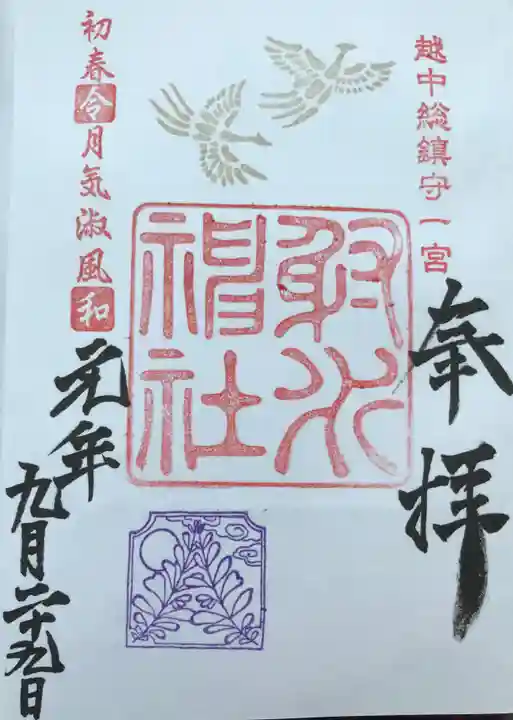 越中総鎮守一宮
奉拝
射水神社
初春令月気淑風和
元年
九月二十九日